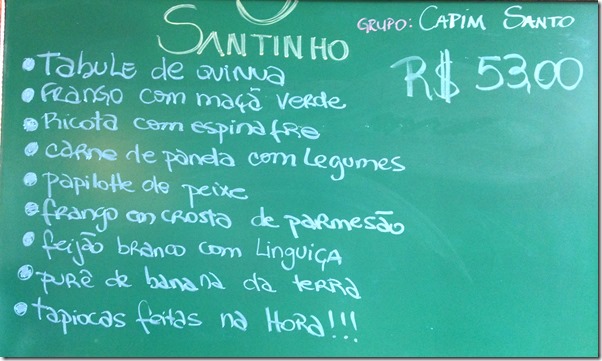 GRUPO: CAPIM SANTO
SANTINHO
R$ 53,00
• TABULE DE QUINUA
• FRANGO COM MAÇÃ VERDE
• RICOTA COM ESPINAFRE
• CARNE DE PANELA COM LEGUMES
• PAPILOTTE DE PEIXE
• FRANGO EM CROSTA DE PARMESÃO
• FEIJÃO BRANCO COM LINGUIÇA
• PURÊ DE BANANA DA TERRA
• TAPIOCAS FEITAS NA HORA!!!